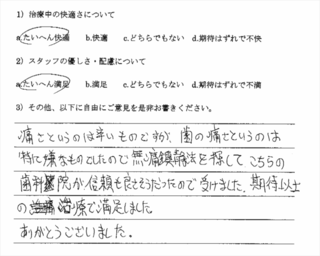 1）治療中の快適さについて
a.たいへん快適 b.快適 c.どちらでもない d.期待はずれで不快
2）スタッフの優しさ・配慮について
a.たいへん満足 b.満足 c.どちらでもない d.期待はずれで不満
3）その他、以下に自由にご意見を是非お書きください。
痛さというのは辛いものですが、歯の痛さというのは
特に嫌なものでしたので無痛鎮静法を探してこちらの
歯科医院が信頼も良さそうだったので受けました。期待以上
の治療で満足しました。
ありがとうございました。